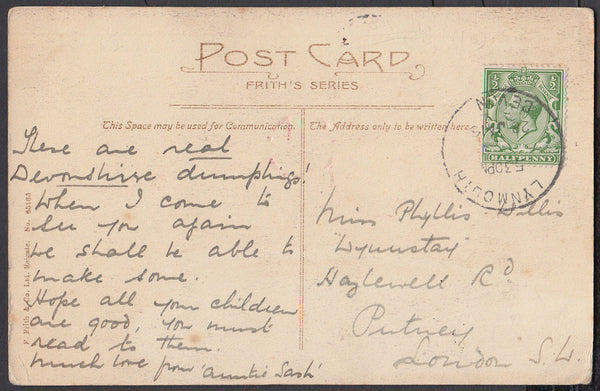 POST CARD
FRITH'S SERIES
This Space may be used for Communication.
The Address only to be written here.
Here are real
Devonshire dumplings!
When I come to
see you again
we shall be able to
make some.
Hope all your children
are good, you must
read to them.
Much love from 'Auntie Sash'
Miss Phyllis Willis
"Wynnstay"
Hazlewell Rd
Putney
London S.W.
½ ½
HALFPENNY
LYNMOUTH
DEVON
5 30PM
F. Frith & Co. Ltd. Reigate. No.